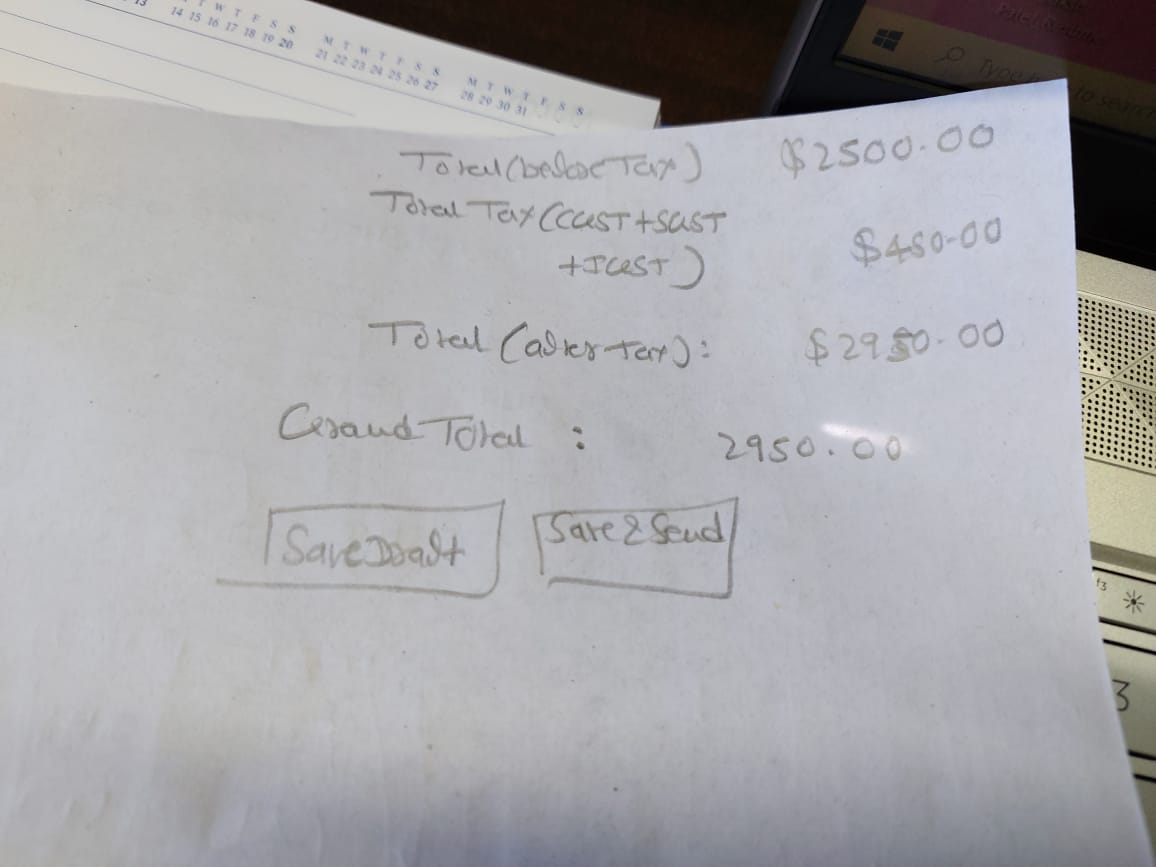 13 14 15 16 17 18 19 20
T W T F S S
M T W T F S S
21 22 23 24 25 26 27
M T W T F S S
28 29 30 31
Type
to search
Total (before Tax) $2500.00
Total Tax (CGST+SGST
+IGST) $450.00
Total (after tax): $2950.00
Grand Total : 2950.00
Save Draft Save & Send
f3
3